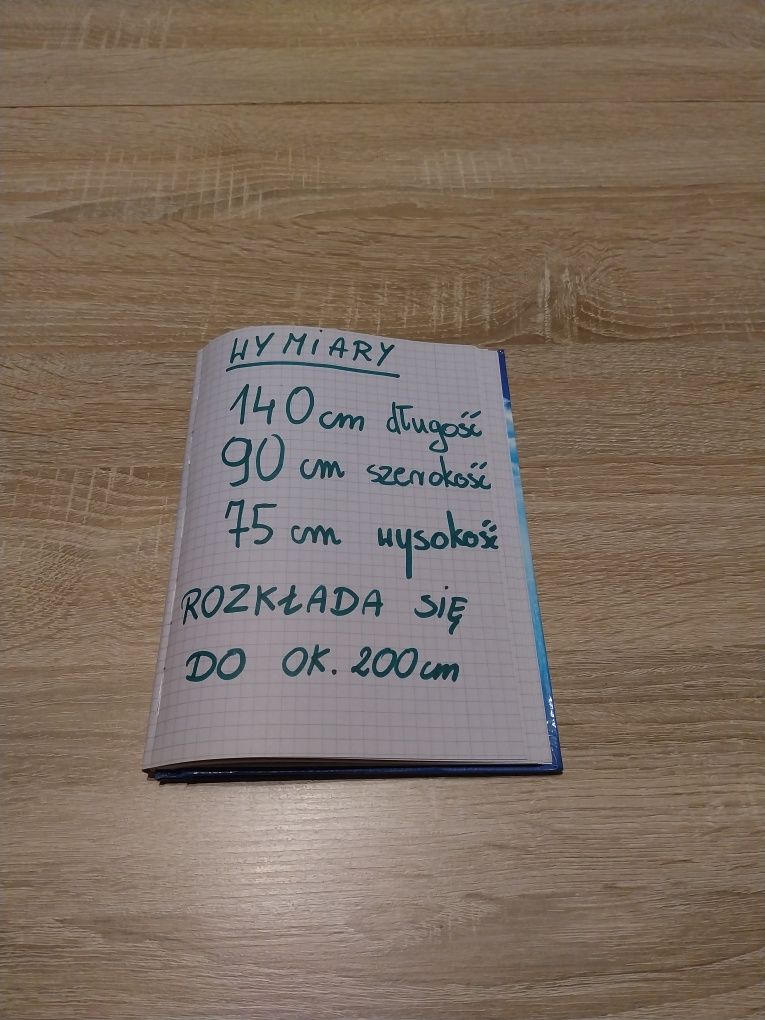 WYMiARY
140 cm długość
90 cm szerokość
75 cm wysokość
ROZKŁADA SiĘ
DO OK. 200 cm